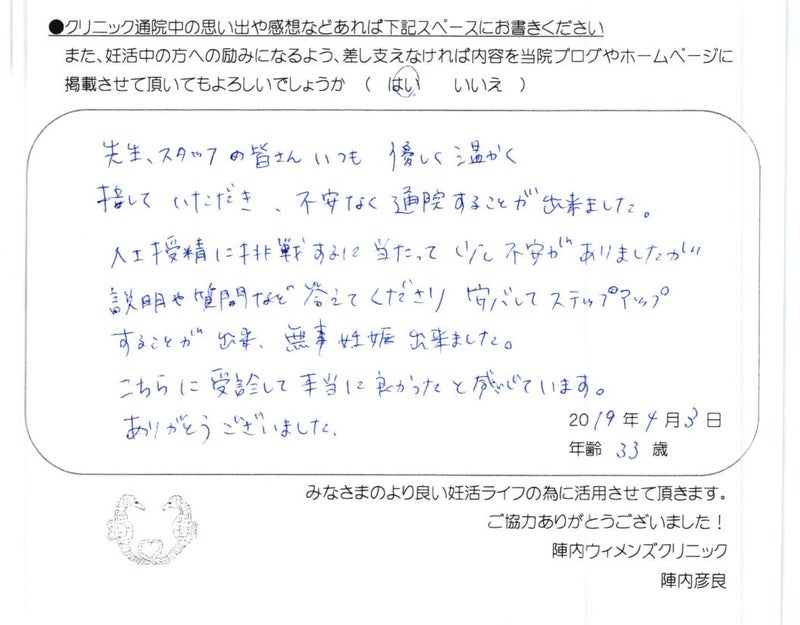 ●クリニック通院中の思い出や感想などあれば下記スペースにお書きください
また、妊活中の方への励みになるよう、差し支えなければ内容を当院ブログやホームページに
掲載させて頂いてもよろしいでしょうか （ はい　いいえ ）
先生、スタッフの皆さんいつも 優しく温かく
接して いただき、不安なく通院することが出来ました。
人工授精に挑戦するに当たって 少し不安がありましたが
説明や質問など答えてくださり 安心してステップアップ
することが出来、無事妊娠出来ました。
こちらに受診して本当に良かったと感じています。
ありがとうございました。
2019年4月3日
年齢 33 歳
みなさまのより良い妊活ライフの為に活用させて頂きます。
ご協力ありがとうございました！
陣内ウィメンズクリニック
陣内彦良